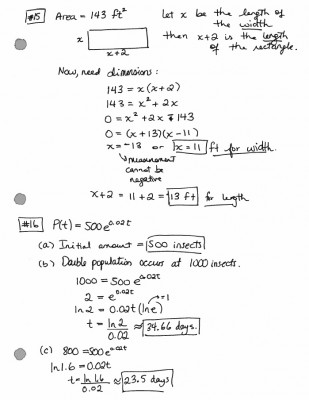 #15 Area = 143 ft²
Let x be the length of
the width
then x+2 is the length
of the rectangle.
x
x+2
Now, need dimensions:
143 = x(x+2)
143 = x² + 2x
0 = x² + 2x - 143
0 = (x+13)(x-11)
x = -13 or x = 11 ft for width.
measurement
cannot be
negative
x+2 = 11+2 = 13 ft for length
#16 P(t) = 500e^0.02t
(a) Initial amount = 500 insects
(b) Double population occurs at 1000 insects.
1000 = 500 e^0.02t
2 = e^0.02t
ln 2 = 0.02t (ln e) =1
t = ln 2 / 0.02 ≈ 34.66 days.
(c) 800 = 500e^0.02t
ln 1.6 = 0.02t
t = ln 1.6 / 0.02 ≈ 23.5 days